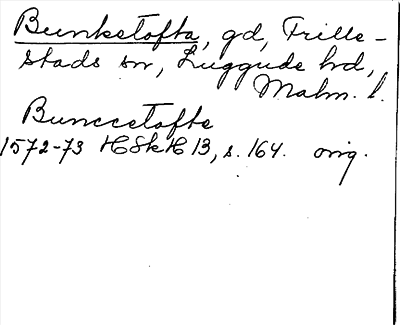 Bunketofta, gd, Frille-
stads sn, Luggude hd,
Malm. l.
Bunccetofte
1572-73 HSkH B, s. 164. orig.